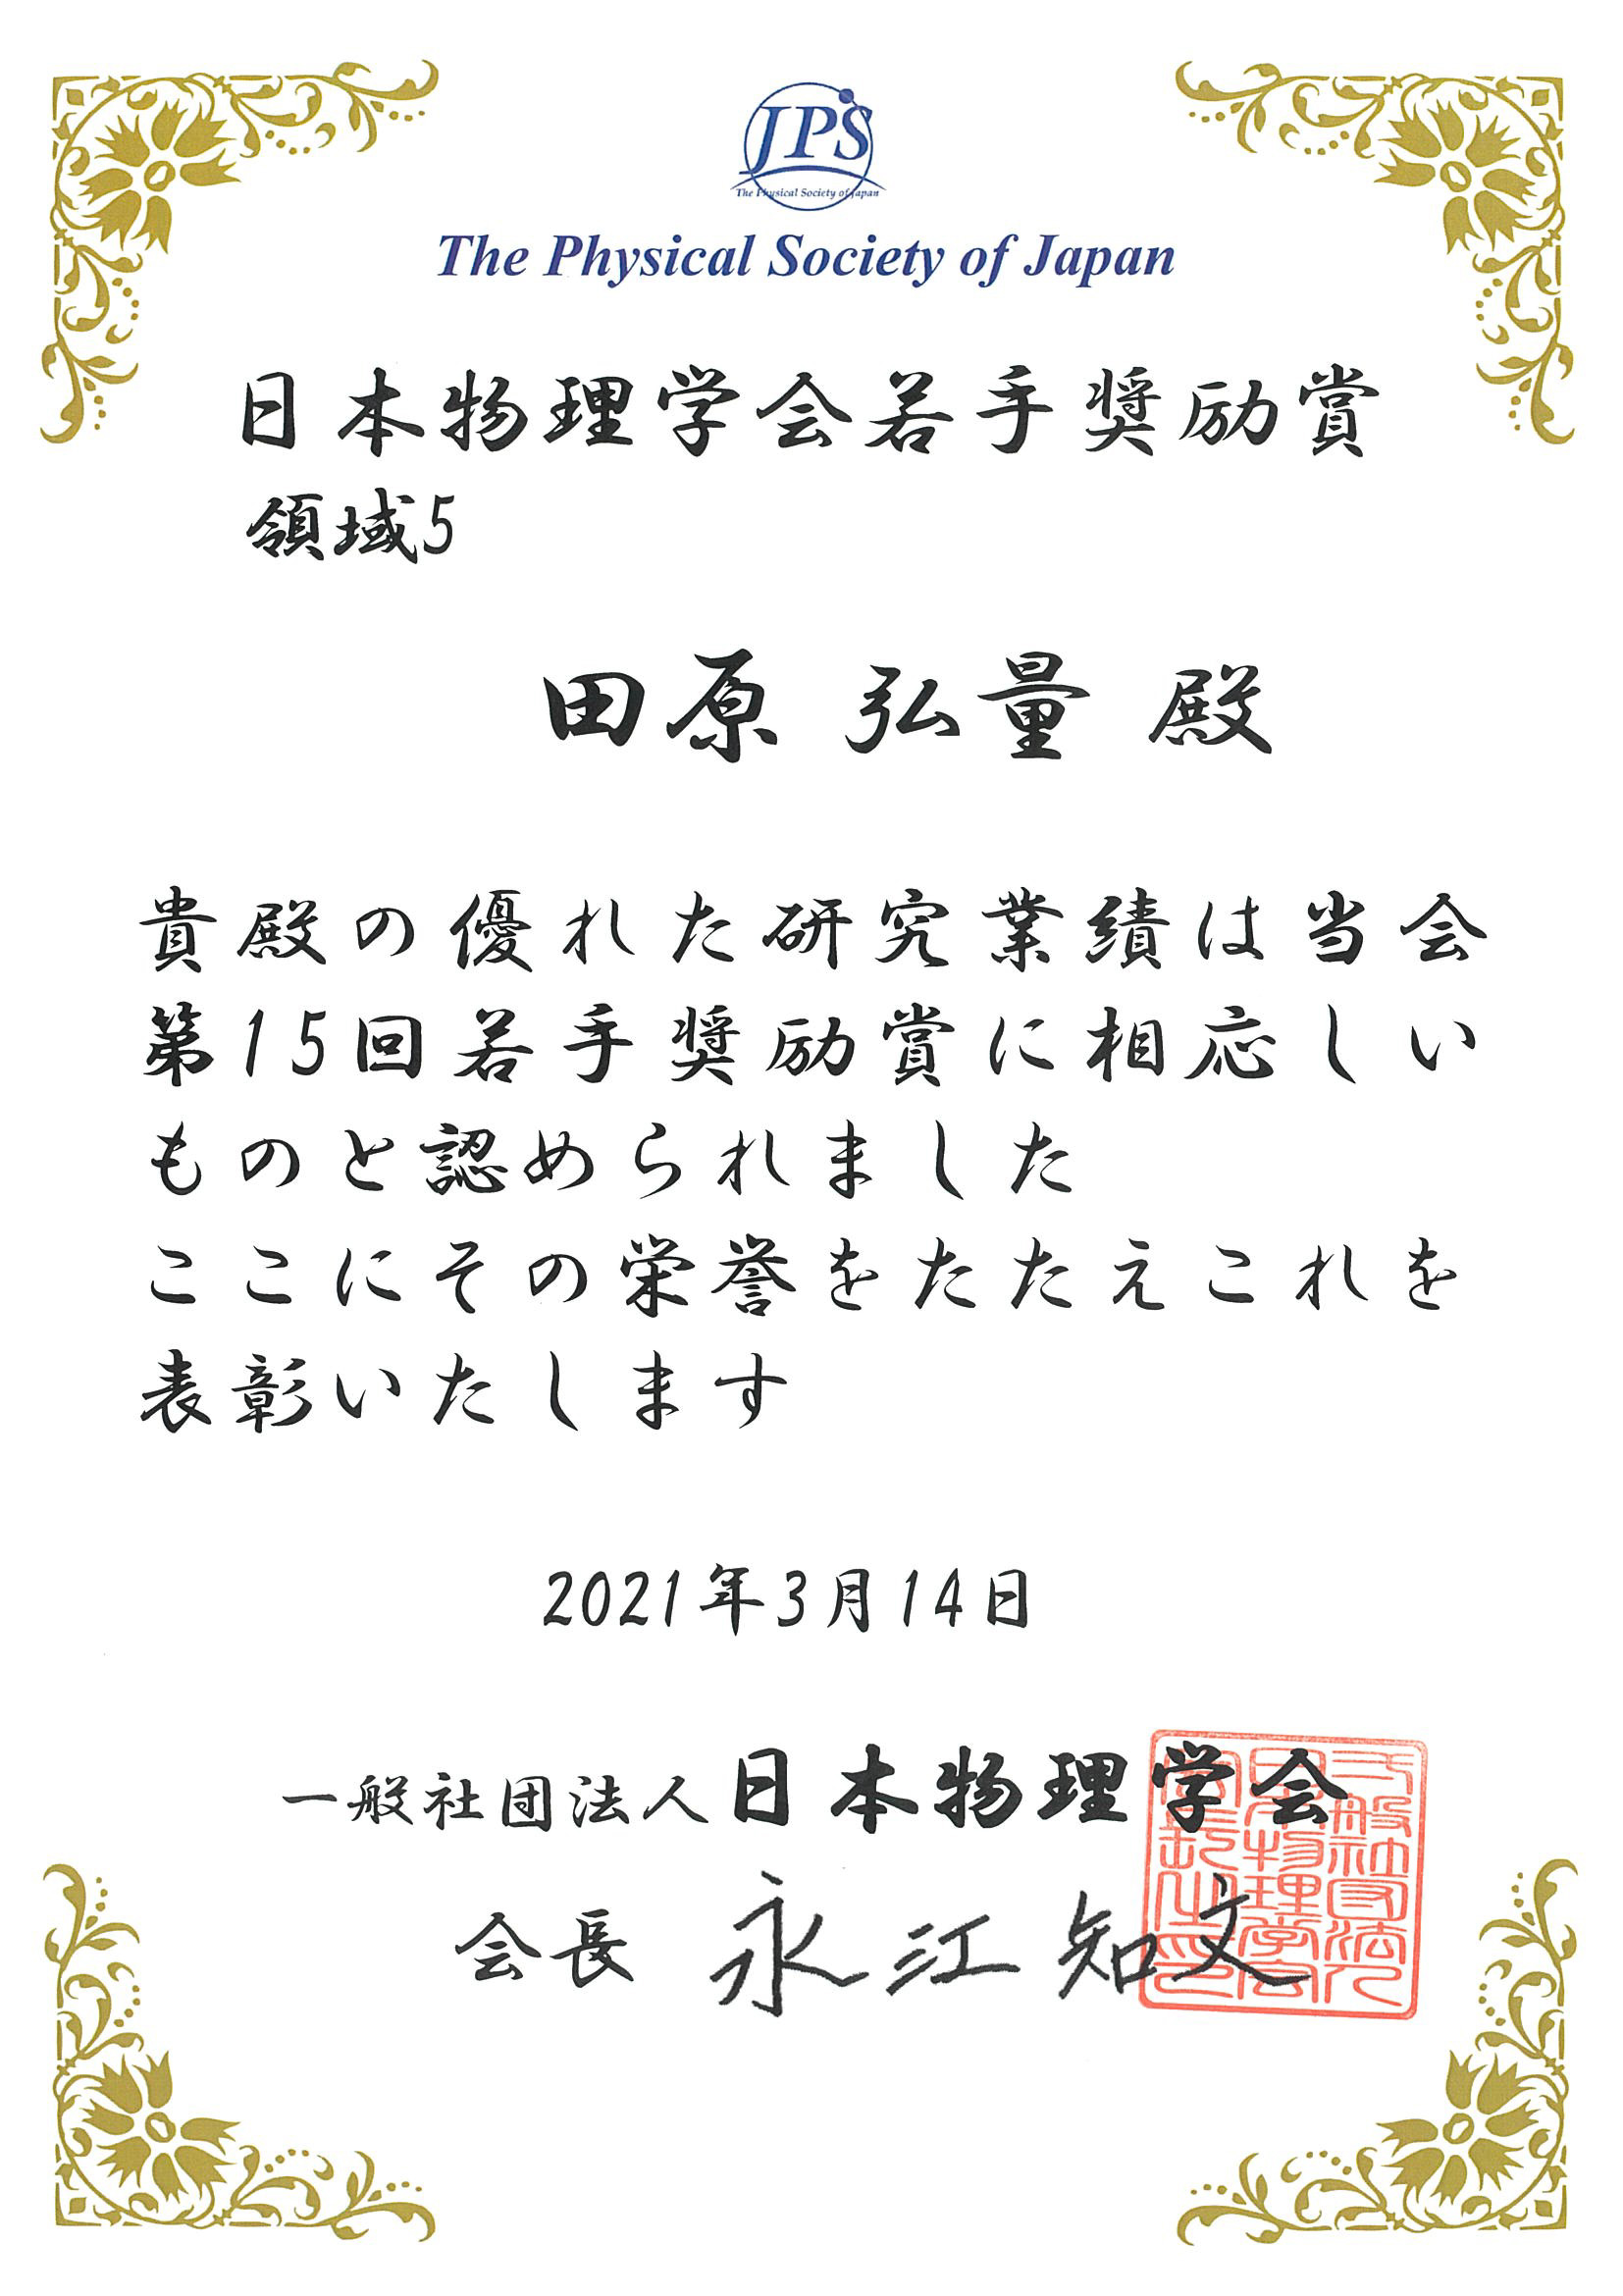 JPS
The Physical Society of Japan
The Physical Society of Japan
日本物理学会若手奨励賞
領域5
田原 弘量 殿
貴殿の優れた研究業績は当会
第15回若手奨励賞に相応しい
ものと認められました
ここにその栄誉をたたえこれを
表彰いたします
2021年3月14日
一般社団法人日本物理学会
会長 永江知文
一般社団法人
日本物理学会